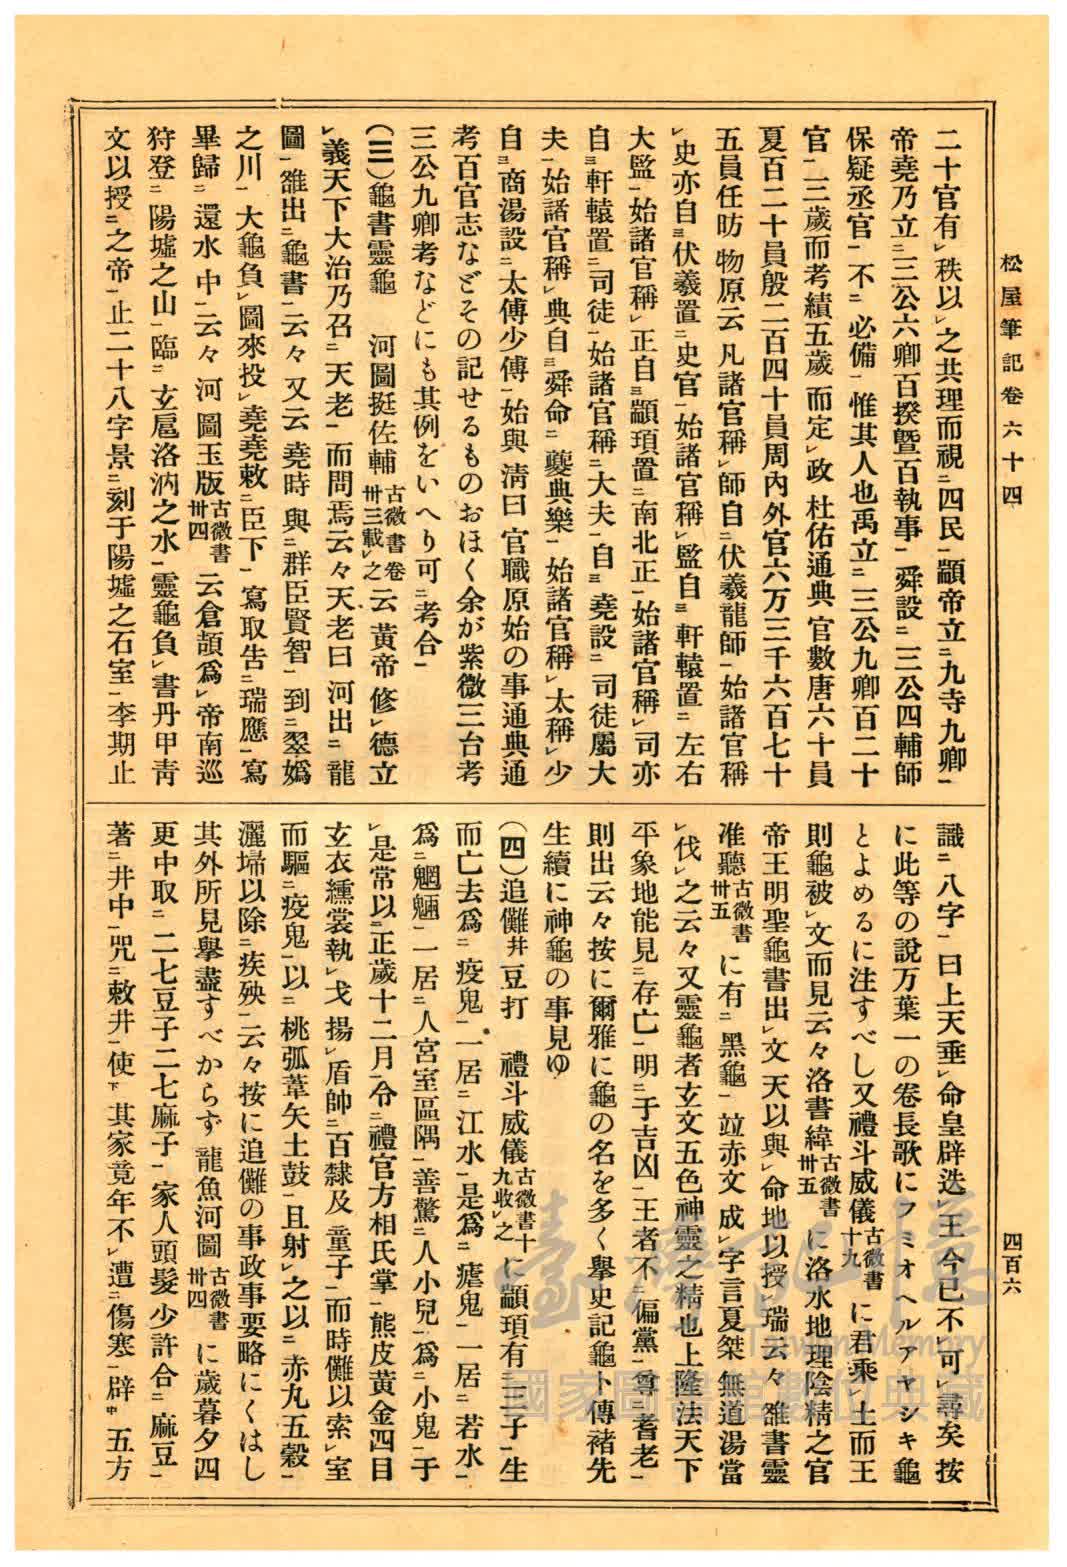 松屋筆記卷六十四
四百六
二十官有㆑秩以㆑之共理而視㆓四民㆒顓帝立㆓九寺九卿㆒
帝堯乃立㆓三公六卿百揆曁百執事㆒舜設㆓三公四輔師
保疑丞官㆒不㆓必備㆒惟其人也禹立㆓三公九卿百二十
官㆒三歲而考績五歲而定㆑政杜佑通典官數唐六十員
夏百二十員殷二百四十員周内外官六万三千六百七十
五員任昉物原云凡諸官稱㆑師自㆓伏羲龍師㆒始諸官稱
㆑史亦自㆔伏羲置㆓史官㆒始諸官稱㆑監自㆔軒轅置㆓左右
大監㆒始諸官稱㆑正自㆔顓頊置㆓南北正㆒始諸官稱㆑司亦
自㆔軒轅置㆓司徒㆒始諸官稱㆓大夫㆒自㆔堯設㆓司徒屬大
夫㆒始諸官稱㆑典自㆔舜命㆓夔典樂㆒始諸官稱㆑太稱㆑少
自㆔商湯設㆓太傅少傅㆒始與淸曰官職原始の事通典通
考百官志などその記せるものおほく余が紫微三台考
三公九卿考などにも其例をいへり可㆓考合㆒
(三)龜書靈龜　河圖挺佐輔古微書卷卅三載㆑之云黃帝修㆑德立
㆑義天下大治乃召㆓天老㆒而問焉云々天老曰河出㆓龍
圖㆒雒出㆓龜書㆒云々又云堯時與㆓群臣賢智㆒到㆓翠嬀
之川㆒大龜負㆑圖來投㆑堯堯敕㆓臣下㆒寫取吿㆓瑞應㆒寫
畢歸㆓還水中㆒云々河圖玉版古微書卅四云倉頡爲㆑帝南巡
狩登㆓陽墟之山㆒臨㆓玄扈洛汭之水㆒靈龜負㆑書丹甲靑
文以授㆓之帝㆒止二十八字景㆓刻于陽墟之石室㆒李期止
識㆓八字㆒曰上天垂㆑命皇辟迭㆑王今已不㆑可㆑尋矣按
に此等の說万葉一の卷長歌にフミオヘルアヤシキ龜
とよめるに注すべし又禮斗威儀古微書十九に君乘㆑土而王
則龜被㆑文而見云々洛書緯古微書卅五に洛水地理陰精之官
帝王明聖龜書出㆑文天以與㆑命地以授㆑瑞云々雒書靈
准聽古微書卅五に有㆓黑龜㆒竝赤文成㆑字言夏桀無道湯當
㆑伐㆑之云々又靈龜者玄文五色神靈之精也上隆法天下
平象地能見㆓存亡㆒明㆓于吉凶㆒王者不㆓偏黨㆒尊㆓耆老㆒
則出云々按に爾雅に龜の名を多く擧史記龜卜傳褚先
生續に神龜の事見ゆ
(四)追儺井豆打　禮斗威儀古微書十九收㆑之に顓頊有㆓三子㆒生
而亡去爲㆓疫鬼㆒一居㆓江水㆒是爲㆓瘧鬼㆒一居㆓若水㆒
爲㆓魍魎㆒一居㆓人宮室區隅㆒善驚㆓人小兒㆒爲㆓小鬼㆒于
㆑是常以㆓正歲十二月㆒令㆓禮官方相氏掌㆒熊皮黃金四目
玄衣纁裳執㆑戈揚㆑盾帥㆓百隸及童子㆒而時儺以索㆑室
而驅㆓疫鬼㆒以㆓桃弧葦矢土鼓㆒且射㆑之以㆓赤九五穀㆒
灑埽以除㆓疾殃㆒云々按に追儺の事政事要略にくはし
其外所見擧盡すべからず龍魚河圖古微書卅四に歲暮夕四
更中取㆓二七豆子二七麻子㆒家人頭髮少許合㆓麻豆㆒
著㆓井中㆒咒㆓敕井㆒使㆘其家竟年不㆑遭㆓傷寒㆒辟㆗五方
臺灣記憶
Taiwan Memory
國家圖書館數位典藏